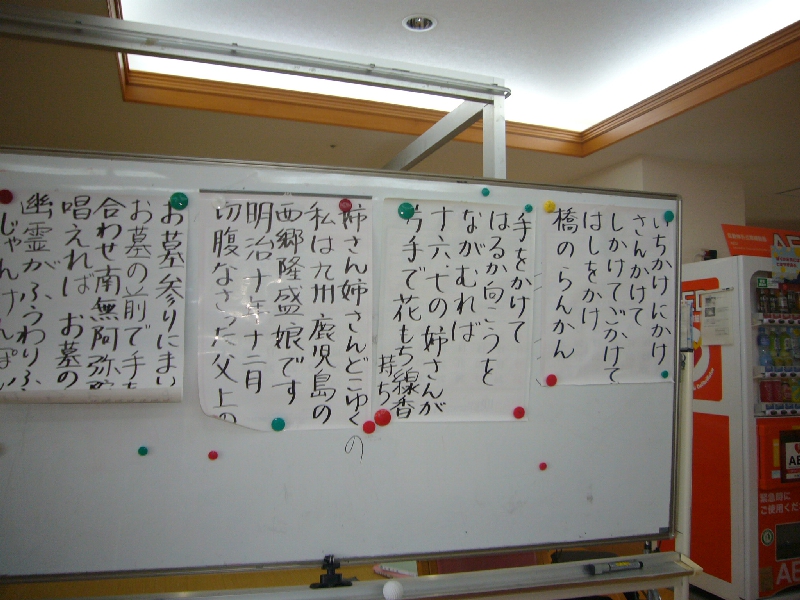 いちかけにかけ
さんかけて
しかけてごかけて
はしをかけ
橋のらんかん
手をかけて
はるか向こうを
ながむれば
十六七の姉さんが
片手で花もち線香
持ち
姉さん姉さんどこゆく
の
私は九州鹿児島の
西郷隆盛娘です
明治十年十二月
切腹なさった父上の
お墓参りにまい
お墓の前で手を
合わせ南無阿弥陀
唱えればお墓の
幽霊がふうわりふ
じゃんけんぽん
緊急時に
ご使用くだ
AE